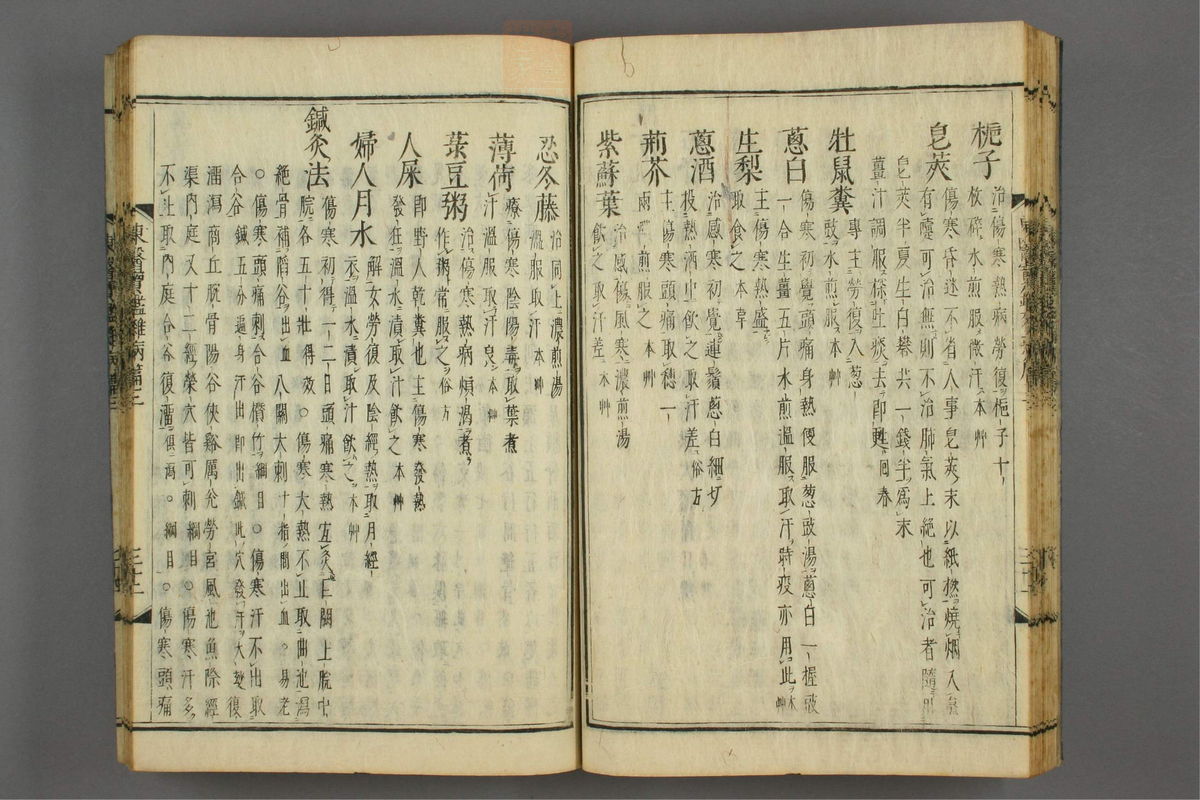 梔子 治傷寒熱病勞復梔子十
枚碎水煎服微汗 本艸
皂莢 傷寒昏迷不省人事皂莢末以紙撚燒烟入鼻
有嚏可治無則不治肺氣上絶也可治者隨用
皂莢半夏生白礬共一錢半爲末
薑汁調服探吐痰去即甦 回春
牡鼠糞 專主勞復入葱
豉水煎服 本艸
葱白 傷寒初覺頭痛身熱便服葱豉湯葱白一握豉
一合生薑五片水煎溫服取汗時疫亦用此 本艸
生梨 主傷寒熱盛
取食之 本草
葱酒 治感寒初覺連鬚葱白細切
投熱酒中飮之取汗差 俗方
荊芥 主傷寒頭痛取穗一
兩煎服之 本艸
紫蘇葉 治感傷風寒濃煎湯
飮之取汗差 本艸
忍冬藤 治同上濃煎湯
溫服取汗 本艸
薄荷 療傷寒陰陽毒取葉煮
汁溫服取汗良 本艸
菉豆粥 治傷寒熱病煩渴煮
作粥常服之 俗方
人屎 即野人乾糞也主傷寒發熱
發狂溫水漬取汁飮之 本艸
婦人月水 解女勞復及陰經熱取月經
衣溫水漬取汁飮之 本艸
鍼灸法 傷寒初得一二日頭痛寒熱宜灸巨闕上脘中
脘各五十壯 得效○傷寒大熱不止取曲池瀉
絶骨補陷谷出血八關大刺十指間出血 易老
○傷寒頭痛刺合谷攢竹 綱目○傷寒汗不出取
合谷鍼五分遍身汗出即出鍼此穴發汗大妙復
溜瀉商丘腕骨陽谷俠谿厲兌勞宮風池魚際經
渠內庭又十二經滎穴皆可刺 綱目○傷寒汗多
不止取內庭合谷復溜俱瀉 綱目○傷寒頭痛
東醫寶鑑雜病篇三